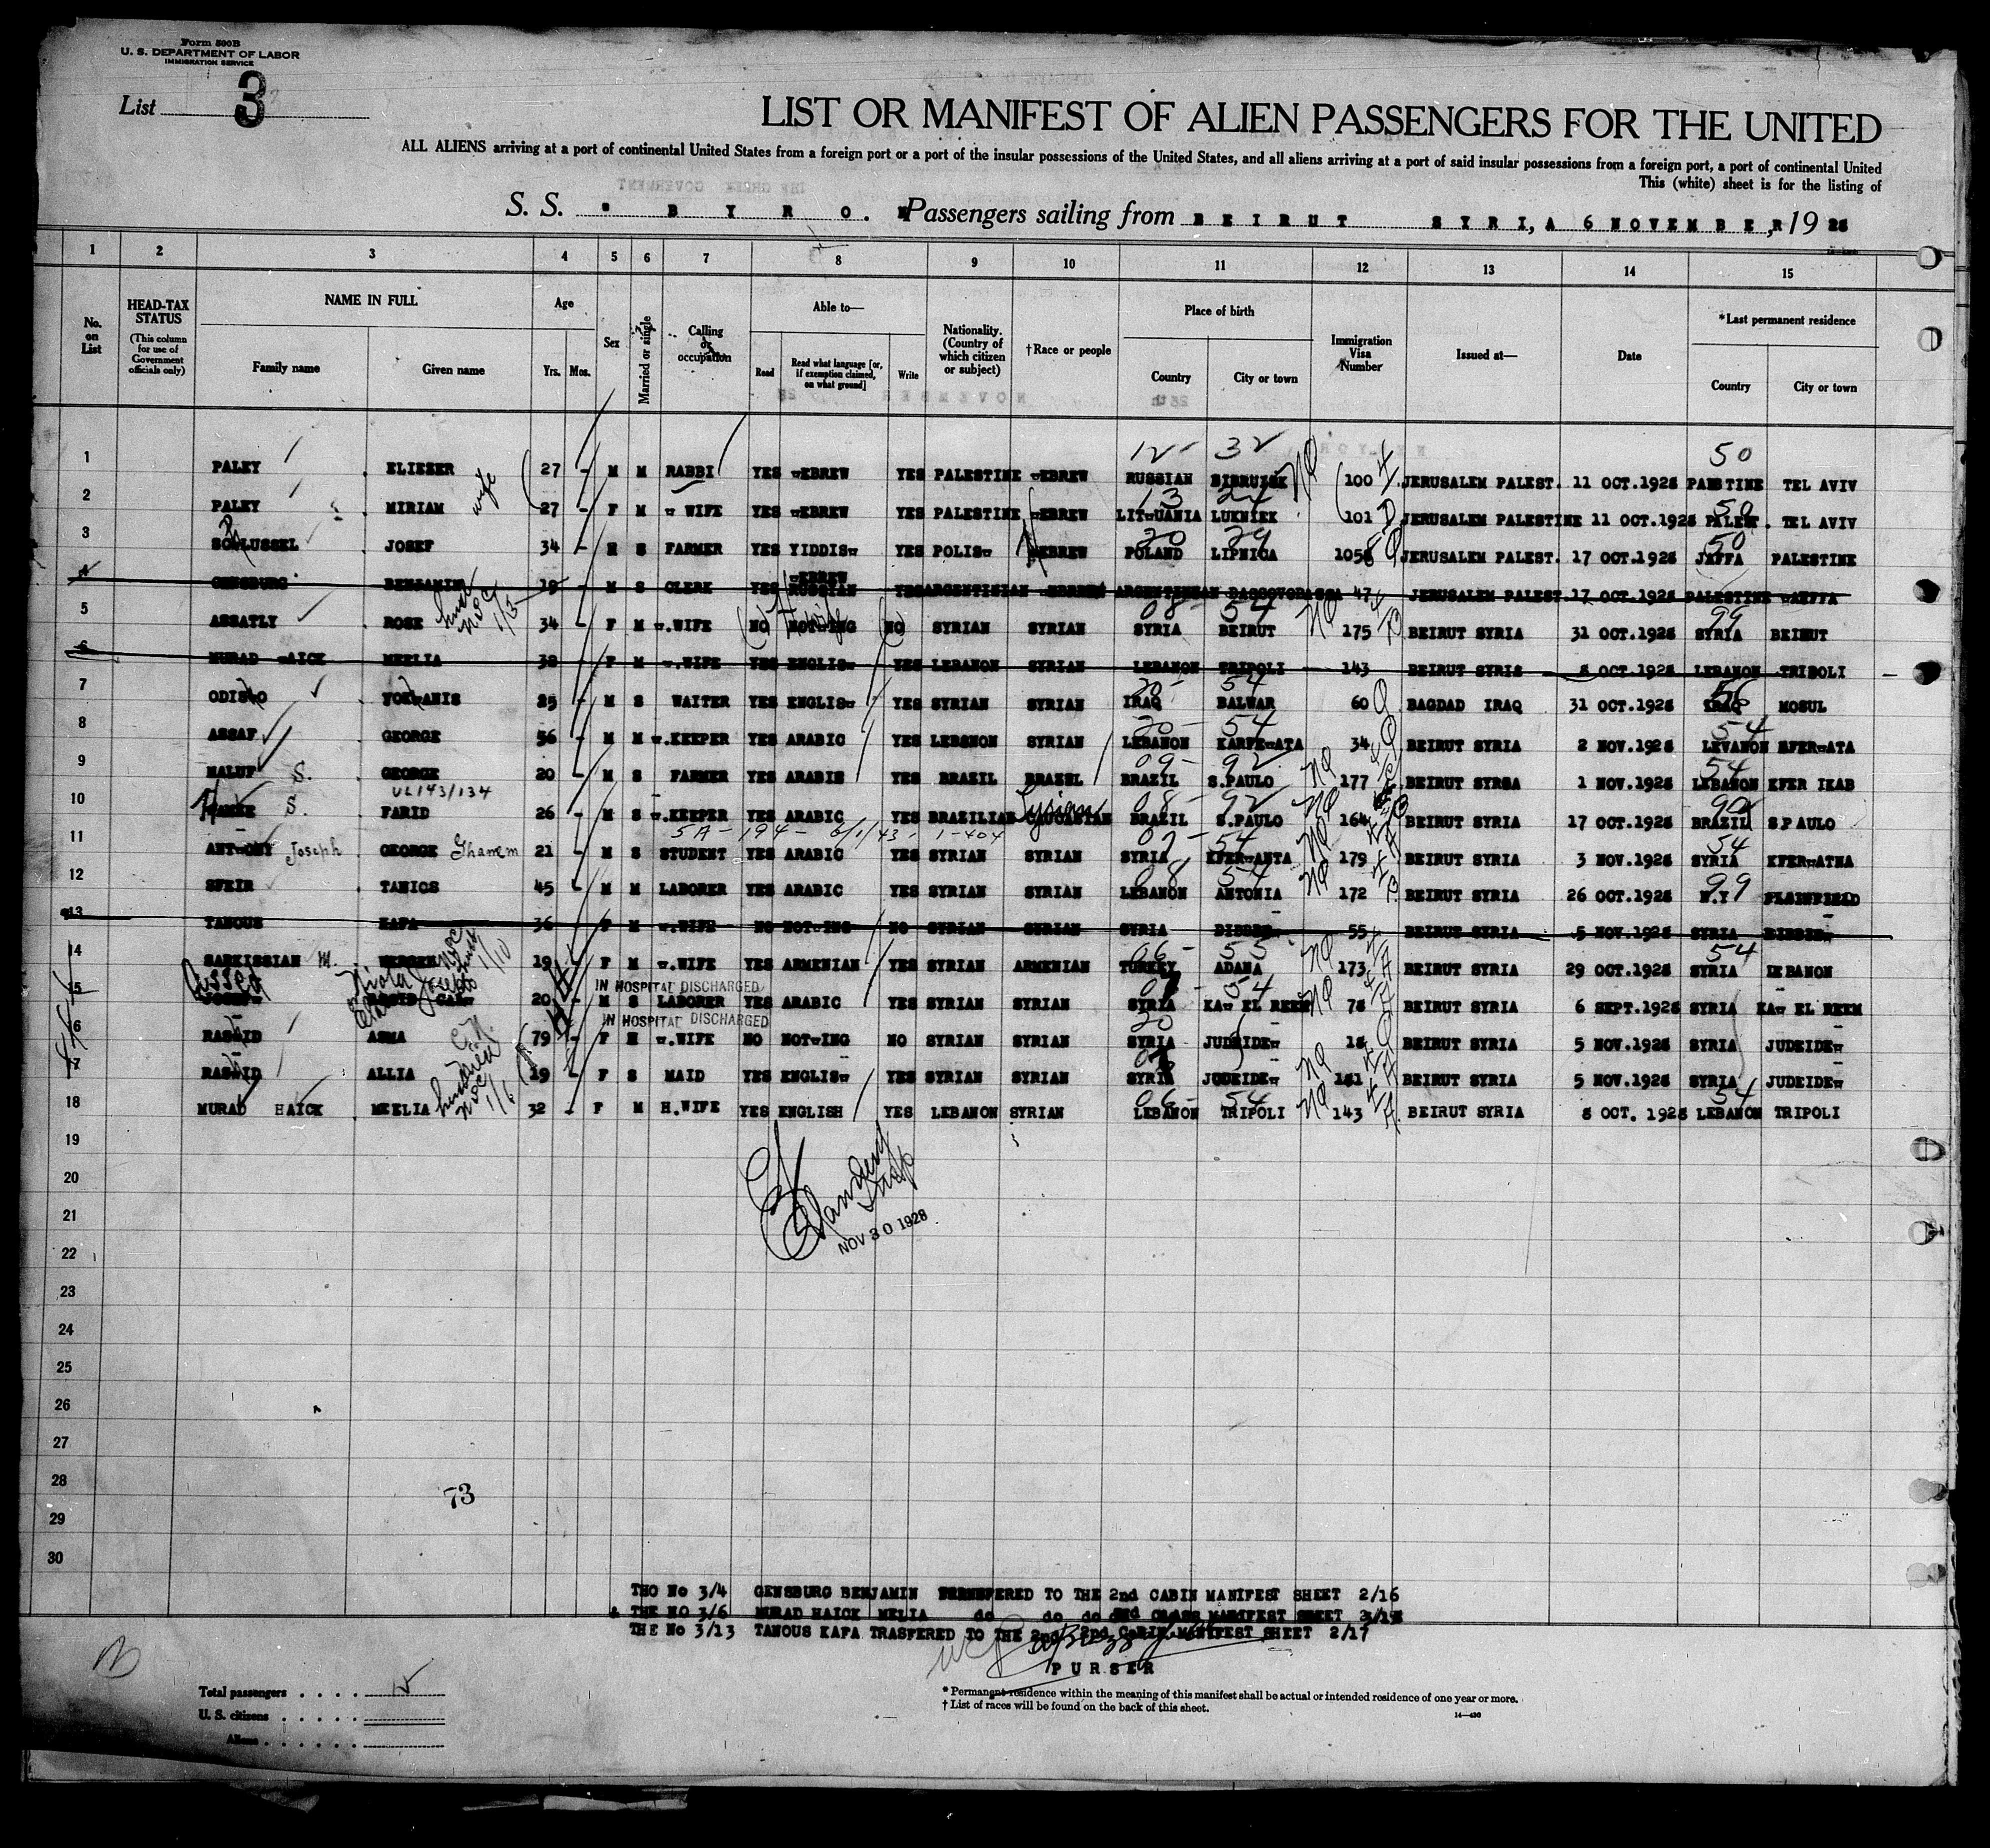 Form 500B
U. S. DEPARTMENT OF LABOR
IMMIGRATION SERVICE
List 3
LIST OR MANIFEST OF ALIEN PASSENGERS FOR THE UNITED
ALL ALIENS arriving at a port of continental United States from a foreign port or a port of the insular possessions of the United States, and all aliens arriving at a port of said insular possessions from a foreign port, a port of continental United
This (white) sheet is for the listing of
S. S. " B Y R O. N Passengers sailing from BEIRUT SYRI, A 6 NOVEMBE,R 19 28
1 2 3 4 5 6 7 8 9 10 11 12 13 14 15
No. on List
HEAD-TAX STATUS (This column for use of Government officials only)
NAME IN FULL Family name Given name
Age Yrs. Mos.
Sex
Married or single
Calling or occupation
Able to— Read Read what language [or, if exemption claimed, on what ground] Write
Nationality. (Country of which citizen or subject)
†Race or people
Place of birth Country City or town
Immigration Visa Number
Issued at—
Date
*Last permanent residence Country City or town
12 - 32 50
1 PALEY ELIESER wife 27 - M M RABBI YES HEBREW YES PALESTINE HEBREW RUSSIAN BIBRUISK NQ 100 JERUSALEM PALEST. 11 OCT.1928 PAESTINE TEL AVIV
13 24 50
2 PALEY MIRIAM 27 - F M H WIFE YES HEBREW YES PALESTINE HEBREW LITHUANIA LUKNIEK 101 JERUSALEM PALESTINE 11 OCT.1928 PALEST. TEL AVIV
20 29 50
3 SCHLUSSEL JOSEF 34 - M S FARMER YES YIDDISH YES POLISH HEBREW POLAND LIPNICA 1058 JERUSALEM PALEST. 17 OCT.1928 JAFFA PALESTINE
4 GENSBURG BENJAMIN 19 - M S CLERK YES HEBREW RUSSIAN YES ARGENTINIAN HEBREW ARGENTINEAN 47 JERUSALEM PALEST. 17 OCT.1928 PALESTINE
08 - 54 99
5 ASSATLY ROSE 34 - F M H.WIFE NO NOTHING NO SYRIAN SYRIAN SYRIA BEIRUT NQ 175 BEIRUT SYRIA 31 OCT.1928 SYRIA BEIRUT
6 MURAD HAICK MEELIA 32 - F M H.WIFE YES ENGLISH YES LEBANON SYRIAN LEBANON TRIPOLI 143 BEIRUT SYRIS 8 OCT.1928 LEBANON TRIBOLI
20 - 54
7 ODISHO 25 - M S WAITER YES ENGLISH YES SYRIAN SYRIAN IRAQ BALWAR 60 BAGDAD IRAQ 31 OCT.1928 IRAQ MOSUL
20 - 54 54
8 ASSAF GEORGE 56 - M M H.KEEPER YES ARABIC YES LEBSNON SYRIAN LEBANON KARFEHATA 34 BEIRUT SYRIA 2 NOV.1928 LEVANON KFERHATA
09 - 92 54
9 MALUF S. GEORGE 20 - M S FARMER YES ARABIS YES BRAZIL BRAZEL BRAZIL S.PAULO NQ 177 BEIRUT SYRSA 1 NOV.1928 LEBANON KFER IKAB
VL143/134 08 - 92 90
10 S. FARID 26 - M S H.KEEPER YES ARABIC YES BRAZILIAN Syrian BRAZIL S.PAULO NQ 164 BEIRUT SYRIA 17 OCT.1928 BRAZIL S.PAULO
5A - 194 - 6/1/43 - 1-404 07 - 54 54
11 ANTHONY Joseph GEORGE Ghanem 21 - M S STUDENT YES ARABIC YES SYRIAN SYRIAN SYRIA KFERHANTA NQ 179 BEIRUT SYRIA 3 NOV.1928 SYRIA KFERHATNA
08 54 99
12 SFEIR TANIOS 45 - M M LABORER YES ARABIC YES SYRIAN SYRIAN LEBANON ANTONIA NQ 172 BEIRUT SYRIA 26 OCT.1928 N.Y PLAINFIELD
13 TANOUS KAFA 36 F M H.WIFE NO NOTHING NO SYRIAN SYRIAN SYRIA 55 BEIRUT SYRIA 5 NOV.1928 SYRIA
06 - 55 54
14 SARKISSIAN M. 19 - F M H.WIFE YES ARMENIAN YES SYRIAN ARMENIAN TURKEY ADANA NQ 173 BEIRUT SYRIA 29 OCT.1928 SYRIA LEBANON
IN HOSPITAL DISCHARGED 54
15 20 - M S LABORER YES ARABIC YES SYRIAN SYRIAN SYRIA KAH EL REEM NQ 78 BEIRUT SYRIA 6 SEPT.1928 SYRIA KAH EL REEM
IN HOSPITAL DISCHARGED 20
16 RASHID ASMA 79 - F M H.WIFE NO NOTHING NO SYRIAN SYRIAN SYRIA JUDEIDEH BEIRUT SYRIA 5 NOV.1928 SYRIA JUDEIDEH
17 RASHID ALLIA 19 - F S MAID YES ENGLISH YES SYRIAN SYRIAN SYRIA JUDEIDEH NQ 181 BEIRUT SYRIA 5 NOV.1928 SYRIA JUDEIDEH
06 - 54 54
18 MURAD HAICK MEELIA 32 - F M H.WIFE YES ENGLISH YES LEBANON SYRIAN LEBANON TRIPOLI NQ 143 BEIRUT SYRIA 8 OCT. 1928 LEBANON TRIPOLI
19
20
21
NOV 30 1928
22
23
24
25
26
27
28
73
29
30
THO No 3/4 GENSBURG BENJAMIN TRENSFERED TO THE 2nd CABIN MANIFEST SHEET 2/16
& THE NO 3/6 MURAD HAICK MELIA do do do 2nd CLASS MANIFEST SHEET
THE No 3/13 TANOUS KAFA TRASFERED TO THE 2nd 2nd CABIN MANIFEST SHEET 2/17
PURSER
Total passengers . . . .
U. S. citizens . . . . .
Aliens . . . . . .
* Permanent residence within the meaning of this manifest shall be actual or intended residence of one year or more.
† List of races will be found on the back of this sheet.
14—430